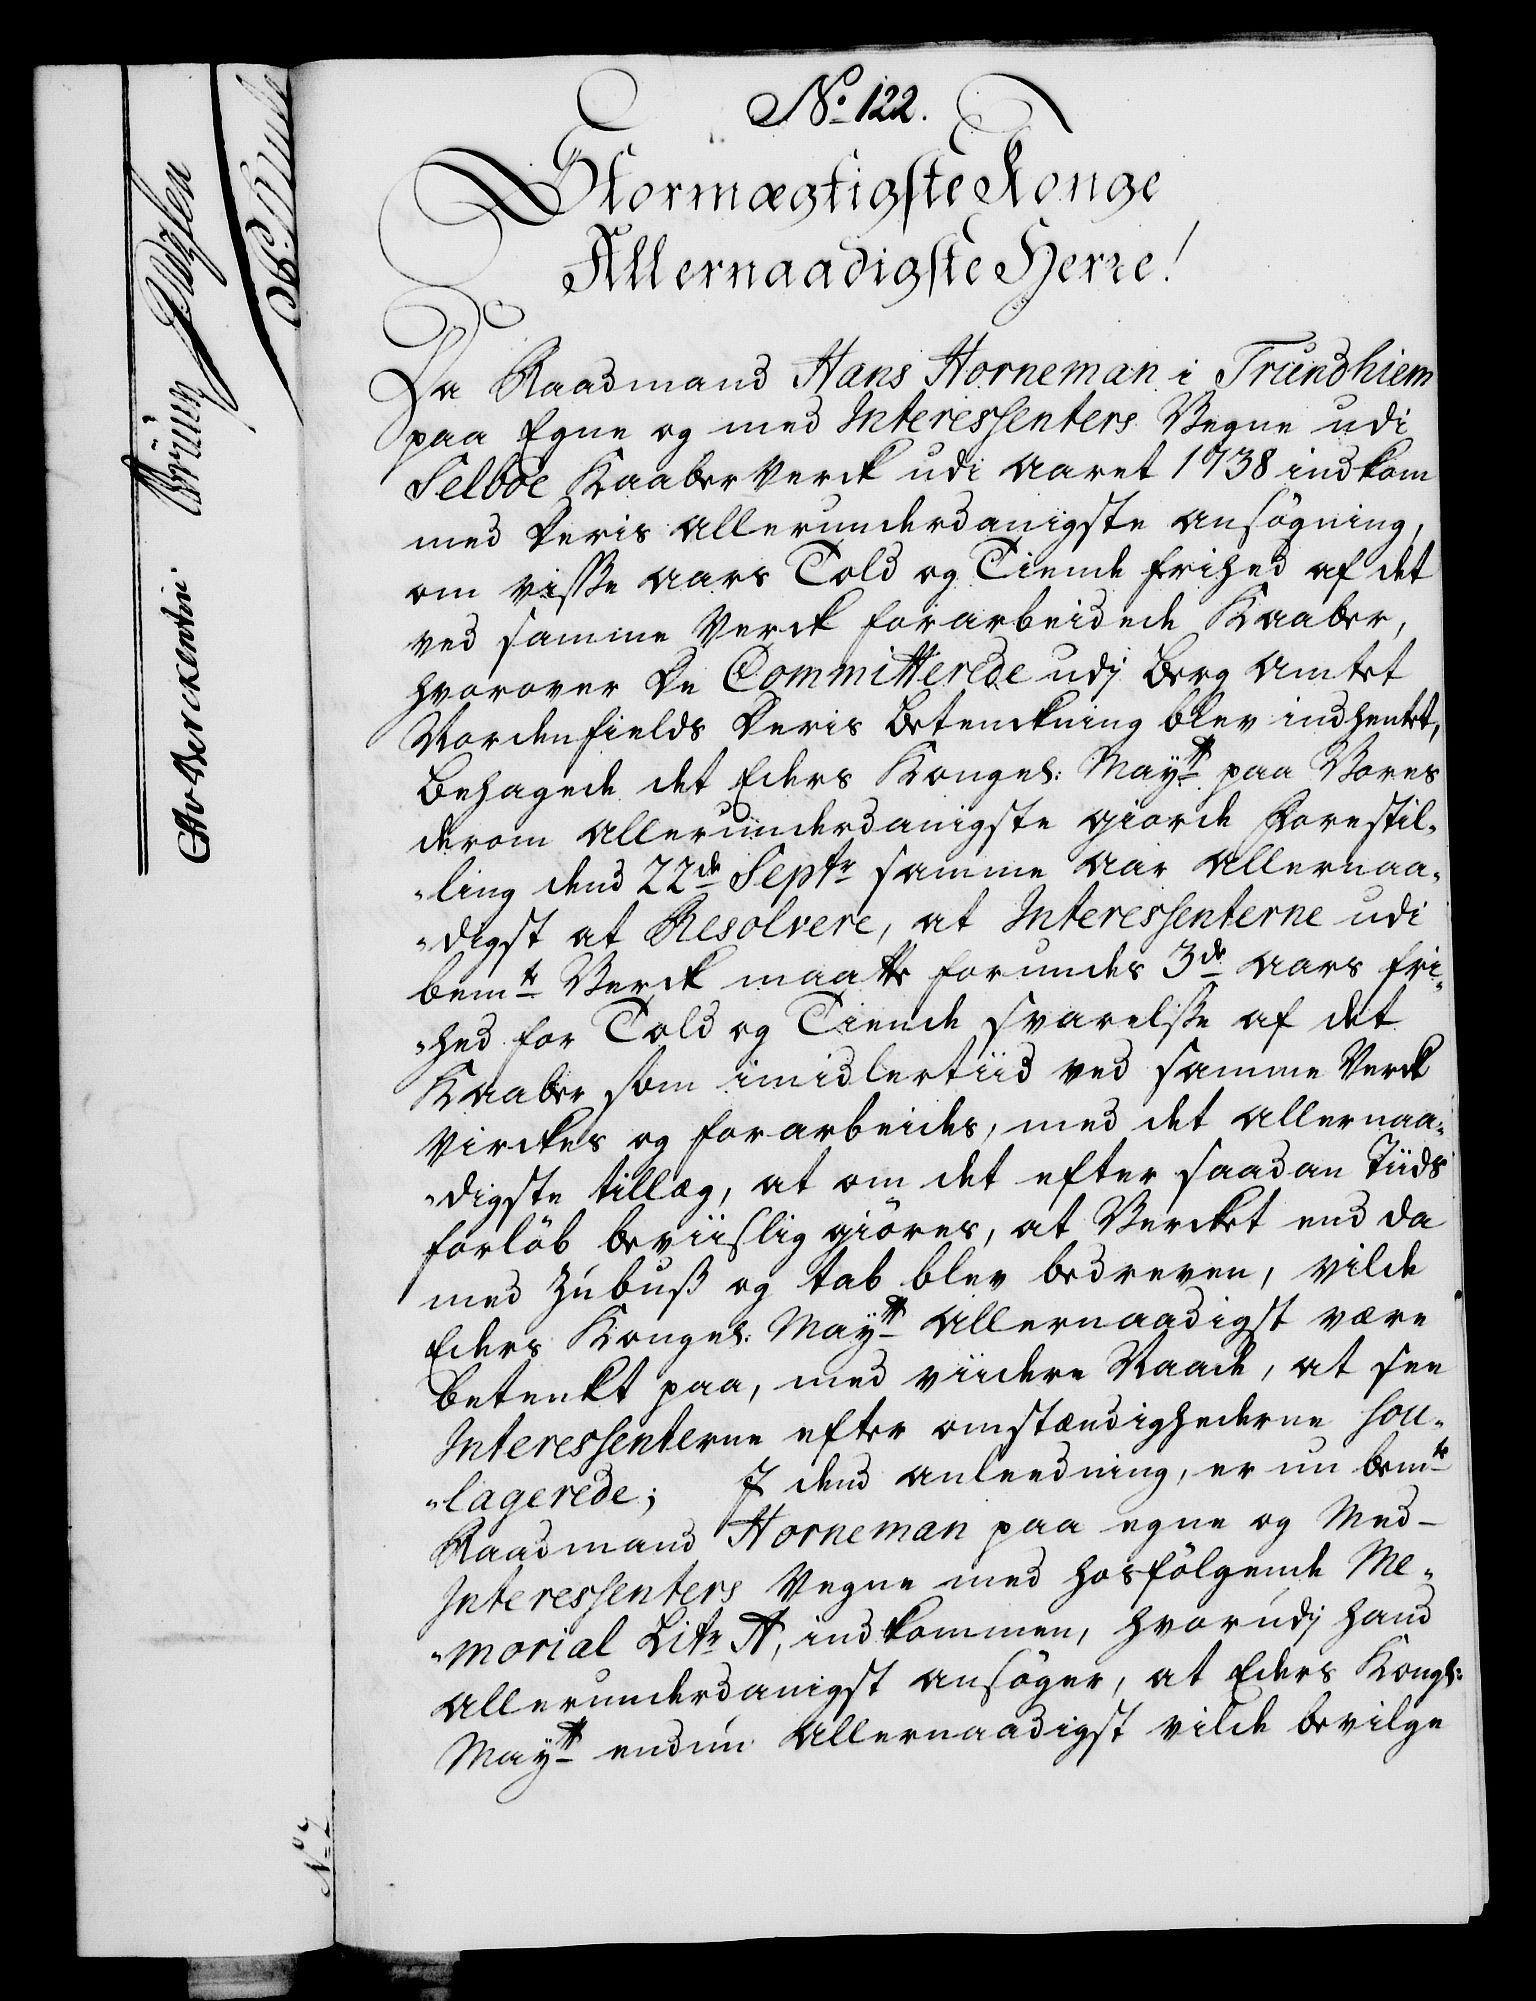 No. 122.
Stormægtigste Konge
Allernaadigste Herre!
Da Raadmand Hans Horneman i Trundhiem
paa Egne og med Interessenters Vegne udi
Selboe Kaaber Verck udi Aaret 1738 indkom
med Deris allerunderdanigste ansøgning,
om visse Aars Told og Tiende frihed af det
ved samme Verck forarbeidede Kaaber,
hvorover De Committerede udj Berg Amtet
Nordenfields Deris Betenckning blev indhentet,
Behagede det Eders Kongel: Maytt paa Vores
derom allerunderdanigste giorde Forestil-
-ling dend 22de Septr samme Aar Allernaa-
-digst at Resolvere, at Interessenterne udi
bemte Verck maatte forundes 3de Aars fri-
-hed for Told og Tiende svarelsse af det
Kaaber som imidlertiid ved samme Verck
Virckes og forarbeides, med det allernaa-
-digste tillæg, at om det efter saadan Tiids
forløb beviislig giöres, at Vercket end da
med Zubuß og tab blev bedreven, vilde
Eders Kongel: Maytt Allernaadigst være
betenkt paa, med viidere Naade, at see
Interessenterne efter omstændighederne sou-
-lagerede; J dend anleedning, er nu bemte
Raadmand Horneman paa egne og Med-
Interessenters Vegne med hosfölgende Me-
-morial Litr A, indkommen, hvorudj hand
allerunderdanigst ansöger, at Eders Kongl:
Maytt endnu Allernaadigst vilde bevilge
Berckentin